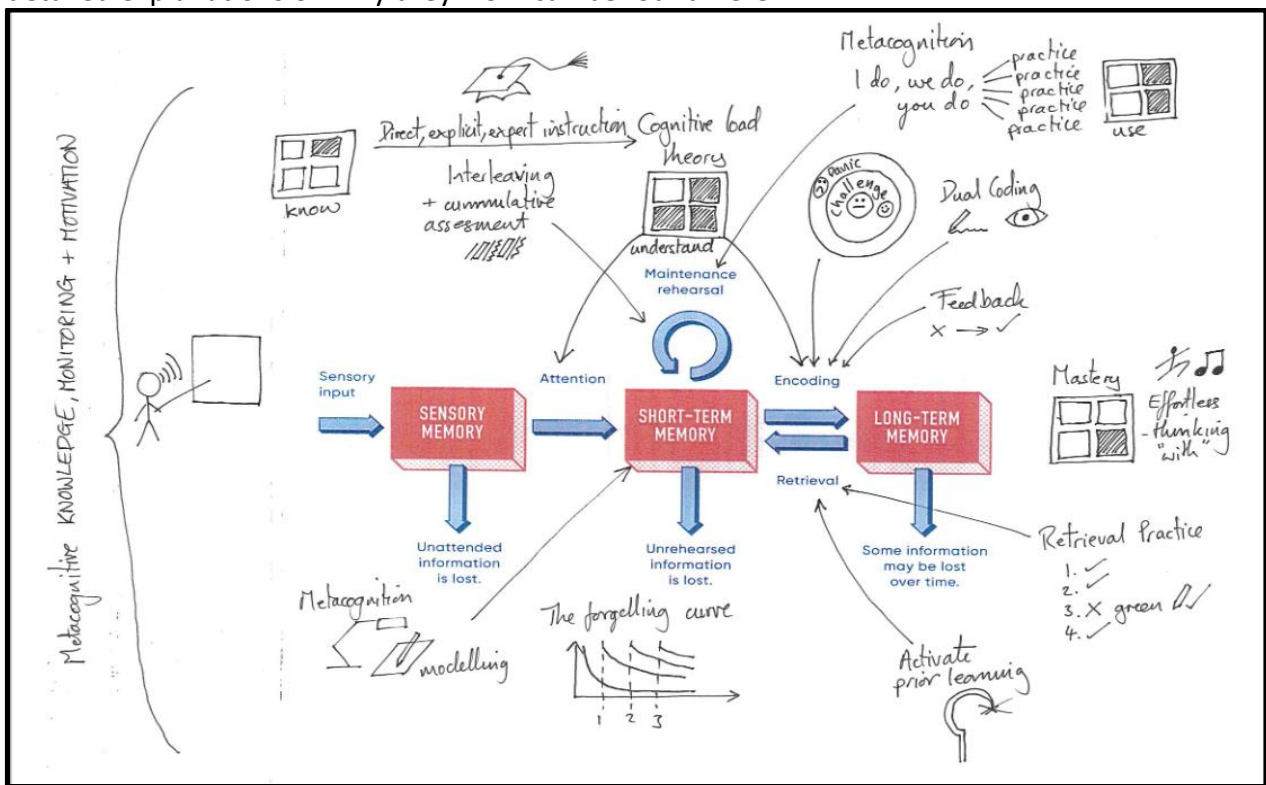 Metacognitive KNOWLEDGE, MONITORING + MOTIVATION
know
Direct, explicit, expert instruction
Interleaving
+ cummulative
assesment
Cognitive load
theory
understand
Metacognition
I do, we do,
you do
practice
practice
practice
practice
practice
use
Panic
Challenge
Dual Coding
Feedback
x → ✓
Maintenance
rehearsal
Sensory
input
SENSORY
MEMORY
Attention
SHORT-TERM
MEMORY
Encoding
Retrieval
LONG-TERM
MEMORY
Mastery
Effortless
-thinking
"with"
Unattended
information
is lost.
Unrehearsed
information
is lost.
Some information
may be lost
over time.
Metacognition
modelling
The forgetting curve
1 2 3
Activate
prior learning
Retrieval Practice
1. ✓
2. ✓
3. X green
4. ✓